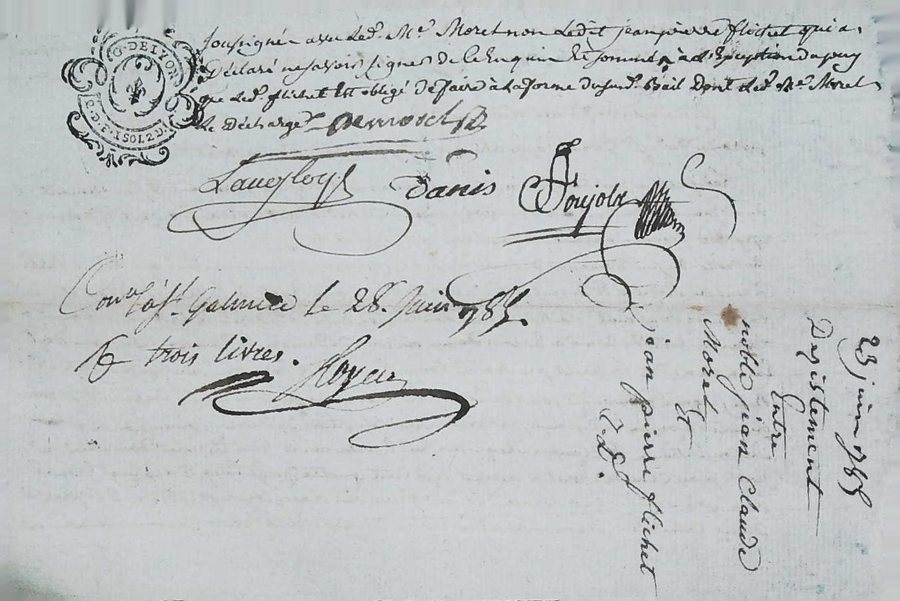 G. DE LYON
Soussignés avec led. Mr. Moret non Ledit jean pierre flichet qui a
Déclaré ne savoir signer de ce Enquis et sommé à l'Exception du peu
que led. flichet est obligé de faire à la forme dud. Bail Dont led. Mr. Moret
Le décharge.
Danis
Poujola
Con.lé à St. Galmier le 28. Juin 1785.
R trois livres.
Royer
23 juin 1785
Desistement
Entre
noble jean Claude
Moret
Et
jean pierre flichet